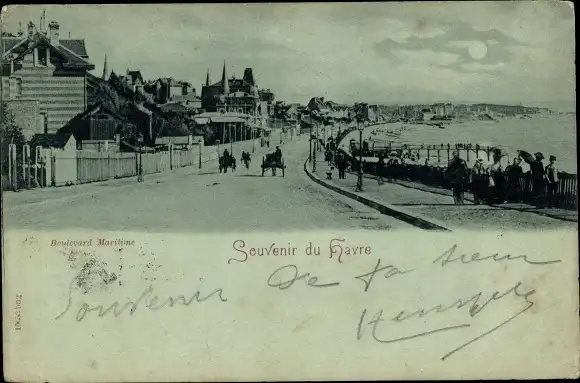 Boulevard Maritime
Souvenir du Havre
Souvenir De ta sœur